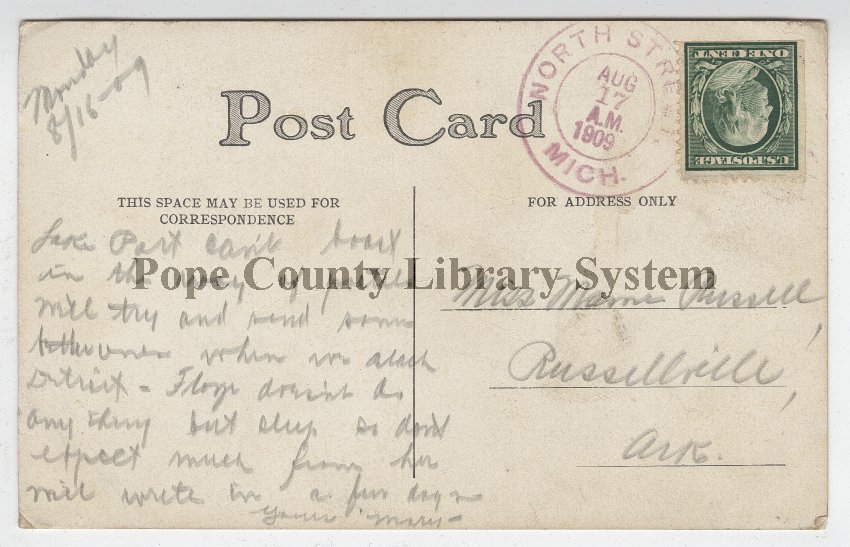 Monday
8/16-09
Post Card
NORTH STREET.
AUG
17
A.M.
1909
MICH.
ONE CENT
U.S. POSTAGE
THIS SPACE MAY BE USED FOR
CORRESPONDENCE
FOR ADDRESS ONLY
Lake Port can't boast
in the way of postals
Will try and send some
better ones when we reach
Detroit - Floye doesn't do
any thing but sleep so don't
expect much from her
will write in a few days
Yours Mary-
Pope County Library System
Miss Mame Russell,
Russellville,
Ark.